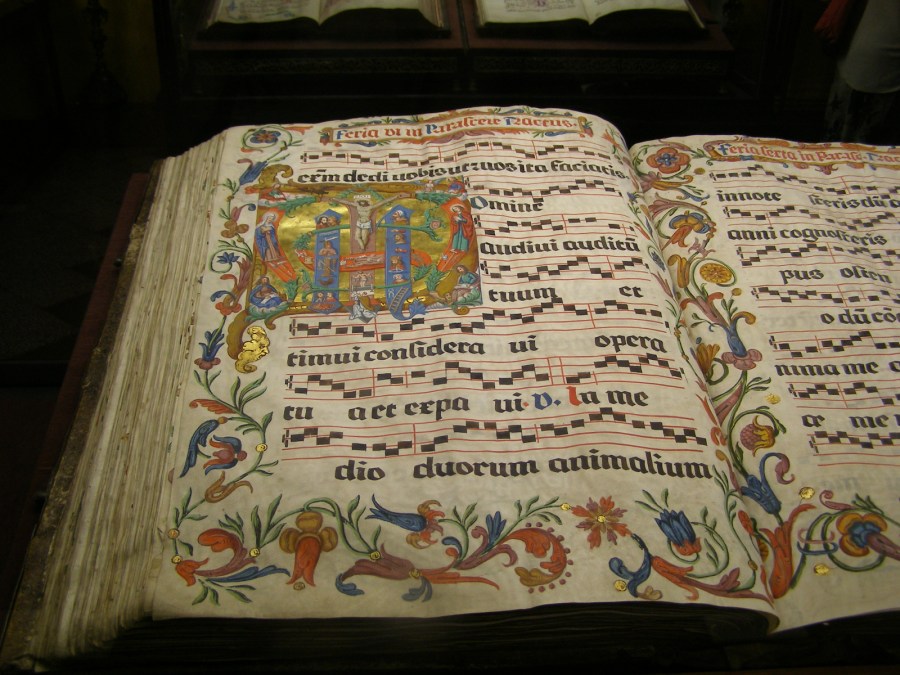 Feria vi in Parasceve
erm̃ dedi vobis ut vos ita faciatis.
Domine
audivi auditũ
tuum et
timui considera vi opera
tu a et expa vi. V. In me
dio duorum animalium
Feria sexta in Paras
innote sceris dũ
anni cognosceris
pus osten
o dũ cõ
nima me
ce me